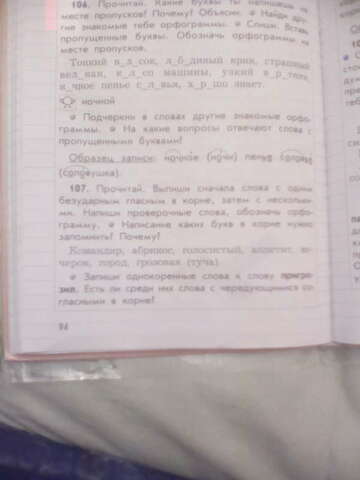 106. Прочитай. Какие буквы ты напишешь на
месте пропусков? Почему? Объясни. Найди дру-
гие знакомые тебе орфограммы. Спиши. Вставь
пропущенные буквы. Обозначь орфограммы на
месте пропусков.
Тонкий г_л_сок, л_б_диный крик, страшный
вел_кан, к_л_со машины, узкий в_р_тник,
н_чное пенье с_л_вья, х_р_шо знает.
ночной
Подчеркни в словах другие знакомые орфо-
граммы. На какие вопросы отвечают слова с
пропущенными буквами?
Образец записи: ночное (ночи) пенье соловья
(соловушка).
107. Прочитай. Выпиши сначала слова с одной
безударным гласным в корне, затем с нескольки-
ми. Напиши проверочные слова, обозначь орфо-
грамму. Написание каких букв в корне нужно
запомнить? Почему?
Командир, абрикос, голосистый, аппетит, ве-
черок, город, грозовая (туча).
Запиши однокоренные слова к слову
Есть ли среди них слова с чередующимися со-
гласными в корне?
94